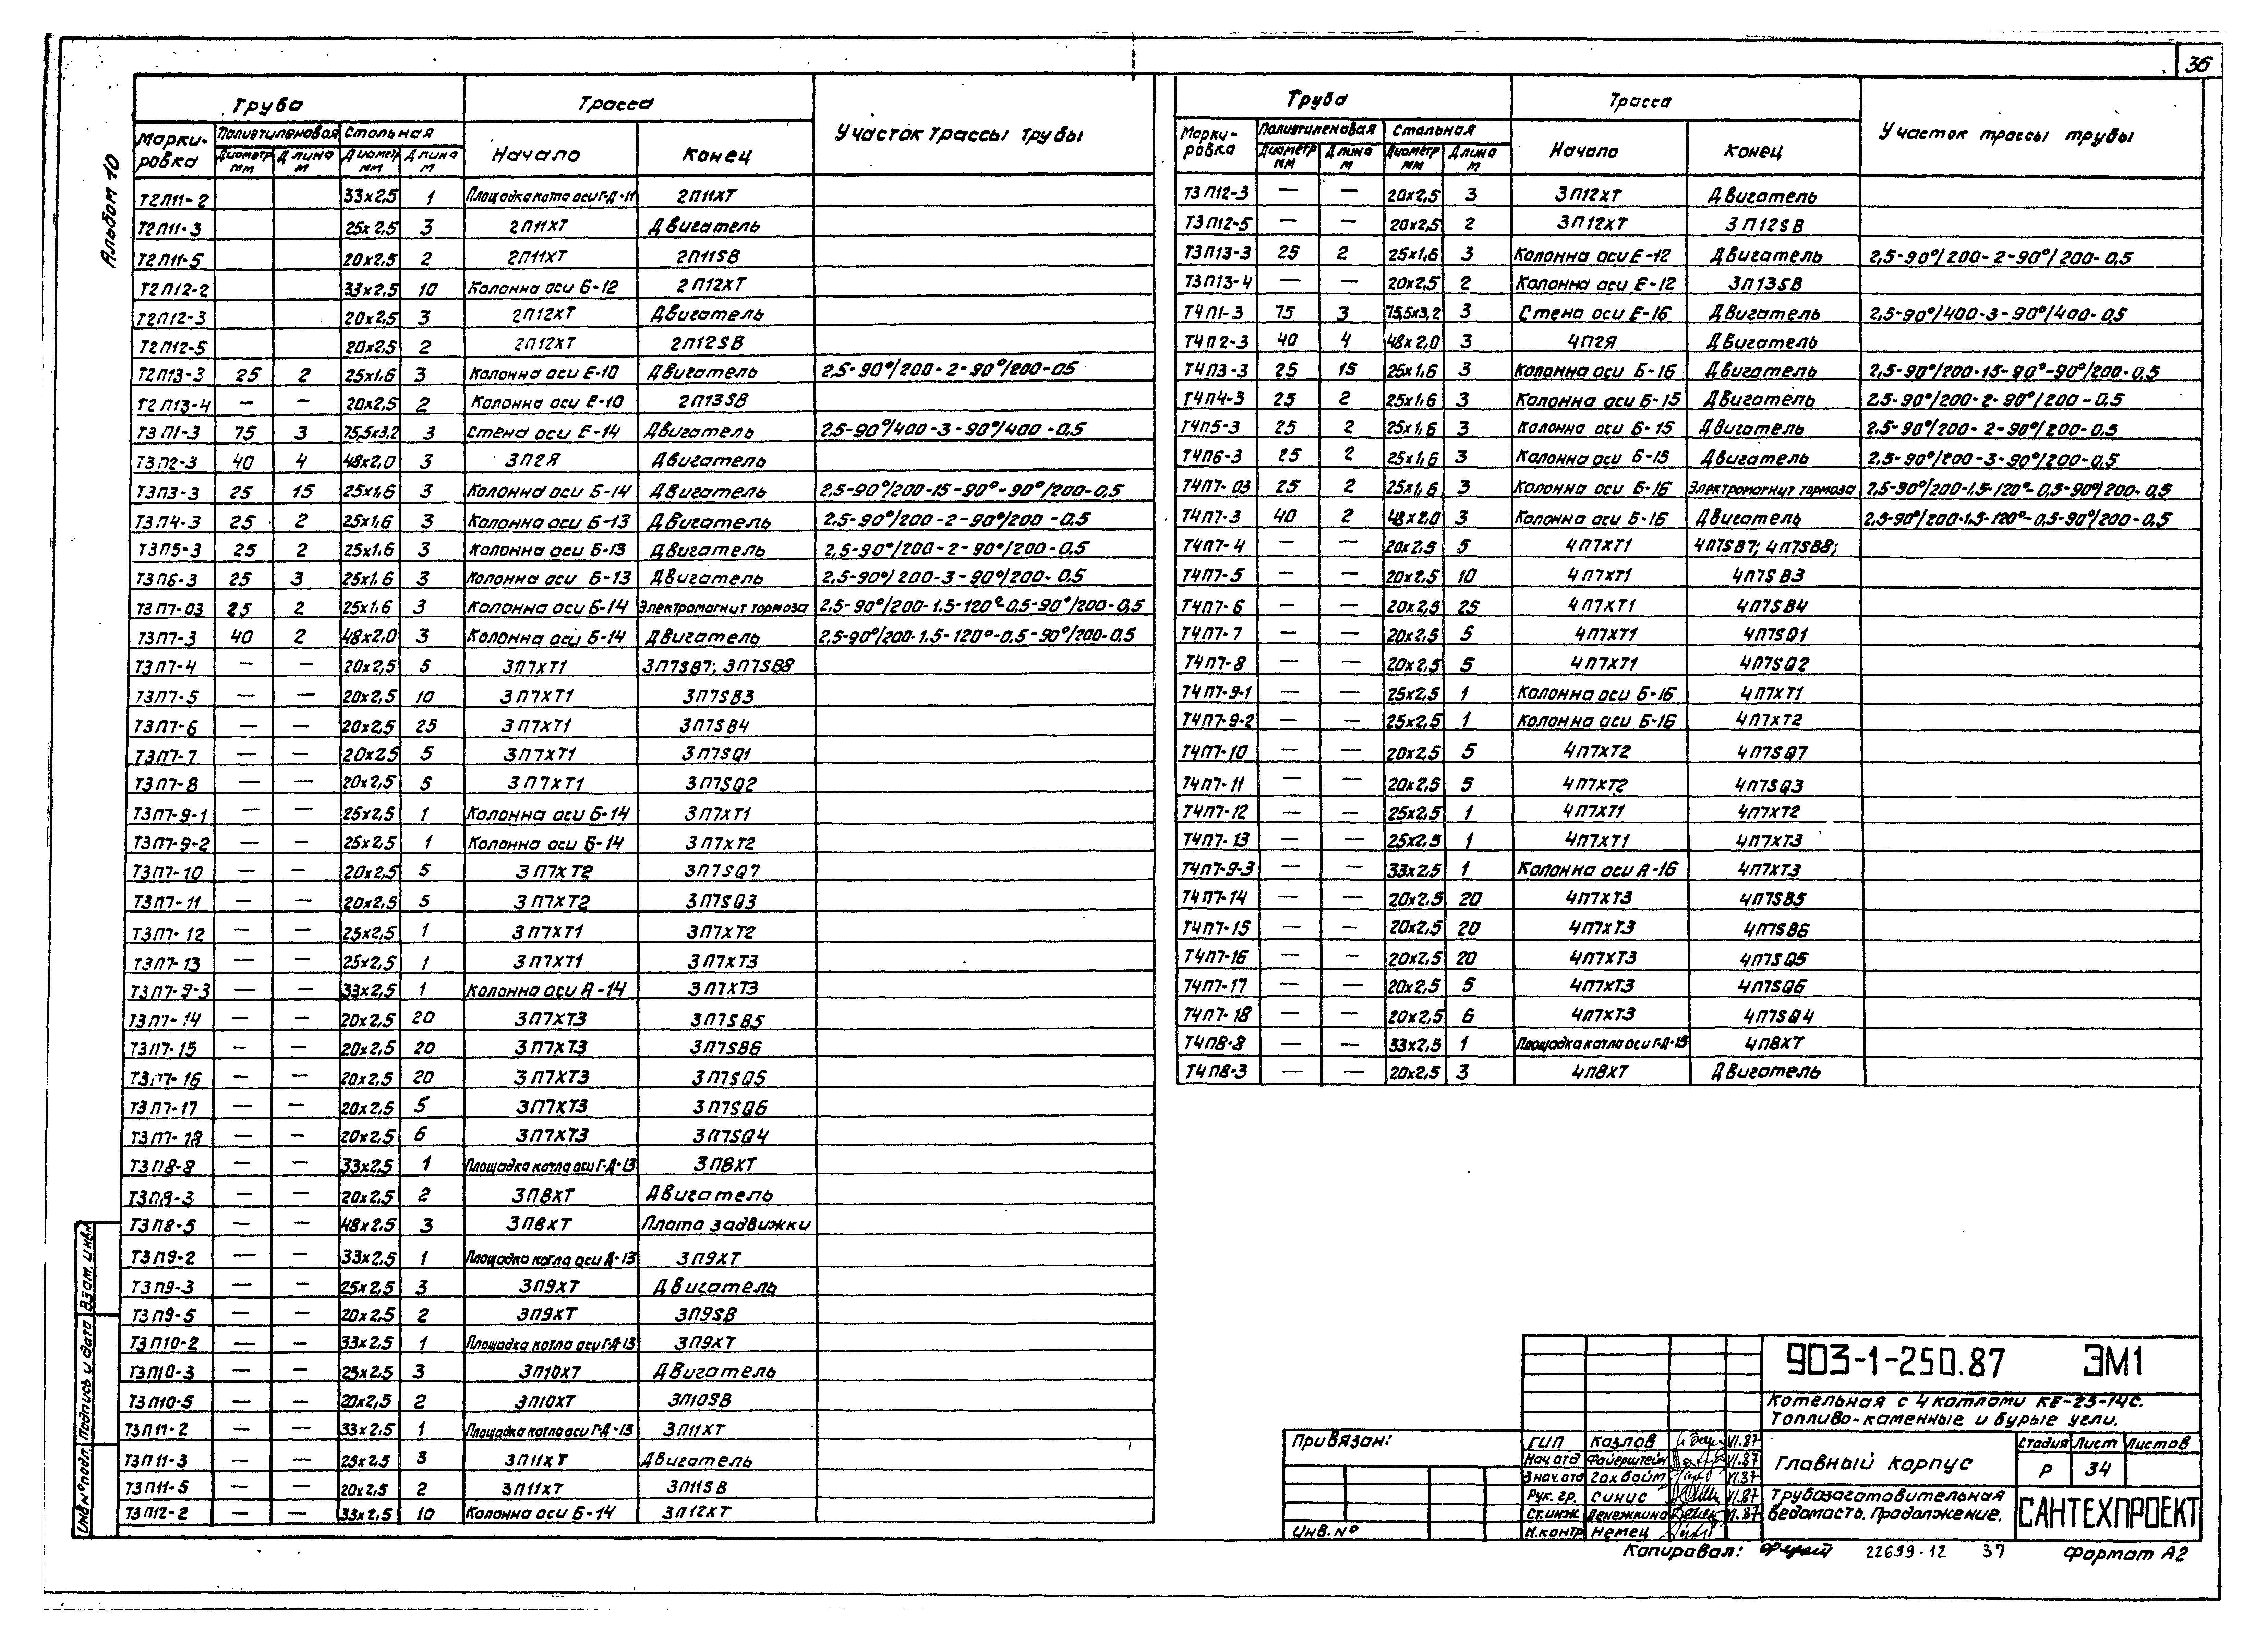 36
Альбом 10
Труба Трасса Участок трассы трубы
Марки-ровка Полиэтиленовая Стальная Начало Конец
Диаметр мм Длина м Диаметр мм Длина м
Т2П11-2 33х2,5 1 Площадка кота оси Г-Д-11 2П11ХТ
Т2П11-3 25х2,5 3 2П11ХТ Двигатель
Т2П11-5 20х2,5 2 2П11ХТ 2П11SB
Т2П12-2 33х2,5 10 Колонна оси Б-12 2П12ХТ
Т2П12-3 20х2,5 3 2П12ХТ Двигатель
Т2П12-5 20х2,5 2 2П12ХТ 2П12SB
Т2П13-3 25 2 25х1,6 3 Колонна оси Е-10 Двигатель 2,5-90°/200-2-90°/200-0,5
Т2П13-4 — — 20х2,5 2 Колонна оси Е-10 2П13SB
Т3П1-3 75 3 75,5х3,2 3 Стена оси Е-14 Двигатель 2,5-90°/400-3-90°/400-0,5
Т3П2-3 40 4 48х2,0 3 3П2Я Двигатель
Т3П3-3 25 15 25х1,6 3 Колонна оси Б-14 Двигатель 2,5-90°/200-15-90°-90°/200-0,5
Т3П4-3 25 2 25х1,6 3 Колонна оси Б-13 Двигатель 2,5-90°/200-2-90°/200-0,5
Т3П5-3 25 2 25х1,6 3 Колонна оси Б-13 Двигатель 2,5-90°/200-2-90°/200-0,5
Т3П6-3 25 3 25х1,6 3 Колонна оси Б-13 Двигатель 2,5-90°/200-3-90°/200-0,5
Т3П7-03 25 2 25х1,6 3 Колонна оси Б-14 Электромагнит тормоза 2,5-90°/200-1,5-120°-0,5-90°/200-0,5
Т3П7-3 40 2 48х2,0 3 Колонна оси Б-14 Двигатель 2,5-90°/200-1,5-120°-0,5-90°/200-0,5
Т3П7-4 — — 20х2,5 5 3П7ХТ1 3П7SB7; 3П7SB8
Т3П7-5 — — 20х2,5 10 3П7ХТ1 3П7SB3
Т3П7-6 — — 20х2,5 25 3П7ХТ1 3П7SB4
Т3П7-7 — — 20х2,5 5 3П7ХТ1 3П7SQ1
Т3П7-8 — — 20х2,5 5 3П7ХТ1 3П7SQ2
Т3П7-9-1 — — 25х2,5 1 Колонна оси Б-14 3П7ХТ1
Т3П7-9-2 — — 25х2,5 1 Колонна оси Б-14 3П7ХТ2
Т3П7-10 — — 20х2,5 5 3П7ХТ2 3П7SQ7
Т3П7-11 — — 20х2,5 5 3П7ХТ2 3П7SQ3
Т3П7-12 — — 25х2,5 1 3П7ХТ1 3П7ХТ2
Т3П7-13 — — 25х2,5 1 3П7ХТ1 3П7ХТ3
Т3П7-9-3 — — 33х2,5 1 Колонна оси А-14 3П7ХТ3
Т3П7-14 — — 20х2,5 20 3П7ХТ3 3П7SB5
Т3П7-15 — — 20х2,5 20 3П7ХТ3 3П7SB6
Т3П7-16 — — 20х2,5 20 3П7ХТ3 3П7SQ5
Т3П7-17 — — 20х2,5 5 3П7ХТ3 3П7SQ6
Т3П7-18 — — 20х2,5 6 3П7ХТ3 3П7SQ4
Т3П8-8 — — 33х2,5 1 Площадка котла оси Г-Д-13 3П8ХТ
Т3П8-3 — — 20х2,5 2 3П8ХТ Двигатель
Т3П8-5 — — 48х2,5 3 3П8ХТ Плата задвижки
Т3П9-2 — — 33х2,5 1 Площадка котла оси Д-13 3П9ХТ
Т3П9-3 — — 25х2,5 3 3П9ХТ Двигатель
Т3П9-5 — — 20х2,5 2 3П9ХТ 3П9SB
Т3П10-2 — — 33х2,5 1 Площадка котла оси Г-Д-13 3П9ХТ
Т3П10-3 — — 25х2,5 3 3П10ХТ Двигатель
Т3П10-5 — — 20х2,5 2 3П10ХТ 3П10SB
Т3П11-2 — — 33х2,5 1 Площадка котла оси Г-Д-13 3П11ХТ
Т3П11-3 — — 25х2,5 3 3П11ХТ Двигатель
Т3П11-5 — — 20х2,5 2 3П11ХТ 3П11SB
Т3П12-2 — — 33х2,5 10 Колонна оси Б-14 3П12ХТ
Труба Трасса Участок трассы трубы
Марки-ровка Полиэтиленовая Стальная Начало Конец
Диаметр мм Длина м Диаметр мм Длина м
Т3П12-3 — — 20х2,5 3 3П12ХТ Двигатель
Т3П12-5 — — 20х2,5 2 3П12ХТ 3П12SB
Т3П13-3 25 2 25х1,6 3 Колонна оси Е-12 Двигатель 2,5-90°/200-2-90°/200-0,5
Т3П13-4 — — 20х2,5 2 Колонна оси Е-12 3П13SB
Т4П1-3 75 3 75,5х3,2 3 Стена оси Е-16 Двигатель 2,5-90°/400-3-90°/400-0,5
Т4П2-3 40 4 48х2,0 3 4П2Я Двигатель
Т4П3-3 25 15 25х1,6 3 Колонна оси Б-16 Двигатель 2,5-90°/200-15-90°-90°/200-0,5
Т4П4-3 25 2 25х1,6 3 Колонна оси Б-15 Двигатель 2,5-90°/200-2-90°/200-0,5
Т4П5-3 25 2 25х1,6 3 Колонна оси Б-15 Двигатель 2,5-90°/200-2-90°/200-0,5
Т4П6-3 25 2 25х1,6 3 Колонна оси Б-15 Двигатель 2,5-90°/200-3-90°/200-0,5
Т4П7-03 25 2 25х1,6 3 Колонна оси Б-16 Электромагнит тормоза 2,5-90°/200-1,5-120°-0,5-90°/200-0,5
Т4П7-3 40 2 48х2,0 3 Колонна оси Б-16 Двигатель 2,5-90°/200-1,5-120°-0,5-90°/200-0,5
Т4П7-4 — — 20х2,5 5 4П7ХТ1 4П7SB7; 4П7SB8;
Т4П7-5 — — 20х2,5 10 4П7ХТ1 4П7SB3
Т4П7-6 — — 20х2,5 25 4П7ХТ1 4П7SB4
Т4П7-7 — — 20х2,5 5 4П7ХТ1 4П7SQ1
Т4П7-8 — — 20х2,5 5 4П7ХТ1 4П7SQ2
Т4П7-9-1 — — 25х2,5 1 Колонна оси Б-16 4П7ХТ1
Т4П7-9-2 — — 25х2,5 1 Колонна оси Б-16 4П7ХТ2
Т4П7-10 — — 20х2,5 5 4П7ХТ2 4П7SQ7
Т4П7-11 — — 20х2,5 5 4П7ХТ2 4П7SQ3
Т4П7-12 — — 25х2,5 1 4П7ХТ1 4П7ХТ2
Т4П7-13 — — 25х2,5 1 4П7ХТ1 4П7ХТ3
Т4П7-9-3 — — 33х2,5 1 Колонна оси А-16 4П7ХТ3
Т4П7-14 — — 20х2,5 20 4П7ХТ3 4П7SB5
Т4П7-15 — — 20х2,5 20 4П7ХТ3 4П7SB6
Т4П7-16 — — 20х2,5 20 4П7ХТ3 4П7SQ5
Т4П7-17 — — 20х2,5 5 4П7ХТ3 4П7SQ6
Т4П7-18 — — 20х2,5 6 4П7ХТ3 4П7SQ4
Т4П8-8 — — 33х2,5 1 Площадка котла оси Г-Д-15 4П8ХТ
Т4П8-3 — — 20х2,5 3 4П8ХТ Двигатель
Инв.№ подл. Подпись и дата Взам. инв.№
Привязан:
Инв.№
903-1-250.87 ЭМ1
Котельная с 4 котлами КЕ-25-14С.
Топливо-каменные и бурые угли.
ГИП Казлов VI.87
Нач.отд Файерштейн VI.87
Знач.отд Гохбойм VI.87
Рук.гр. Синис VI.87
Ст.инж Денежкина VI.87
Н.контр Немец
Главный корпус
Стадия Лист Листов
Р 34
Трубозаготовительная
ведомость. Продолжение.
САНТЕХПРОЕКТ
Капировал: 22699-12 37 Формат А2